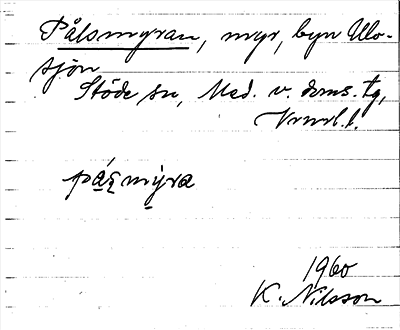 Pålsmyran, myr, byn Ulo-
sjön
Stöde sn, Med. v. doms. tg,
Vrnrl. l.
pá̱ʂmỳra
1960
K. Nilsson